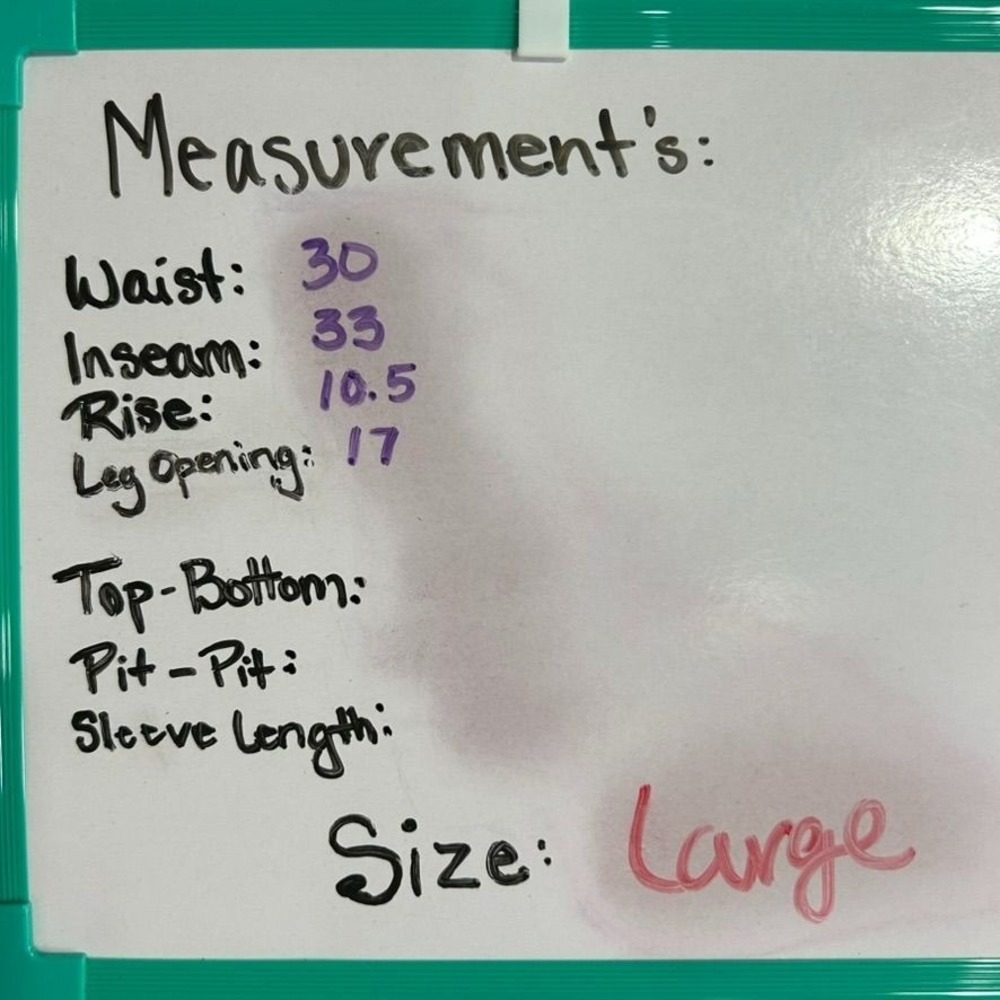 Measurement's:
Waist: 30
Inseam: 33
Rise: 10.5
Leg Opening: 17
Top-Bottom:
Pit-Pit:
Sleeve Length:
Size: Large